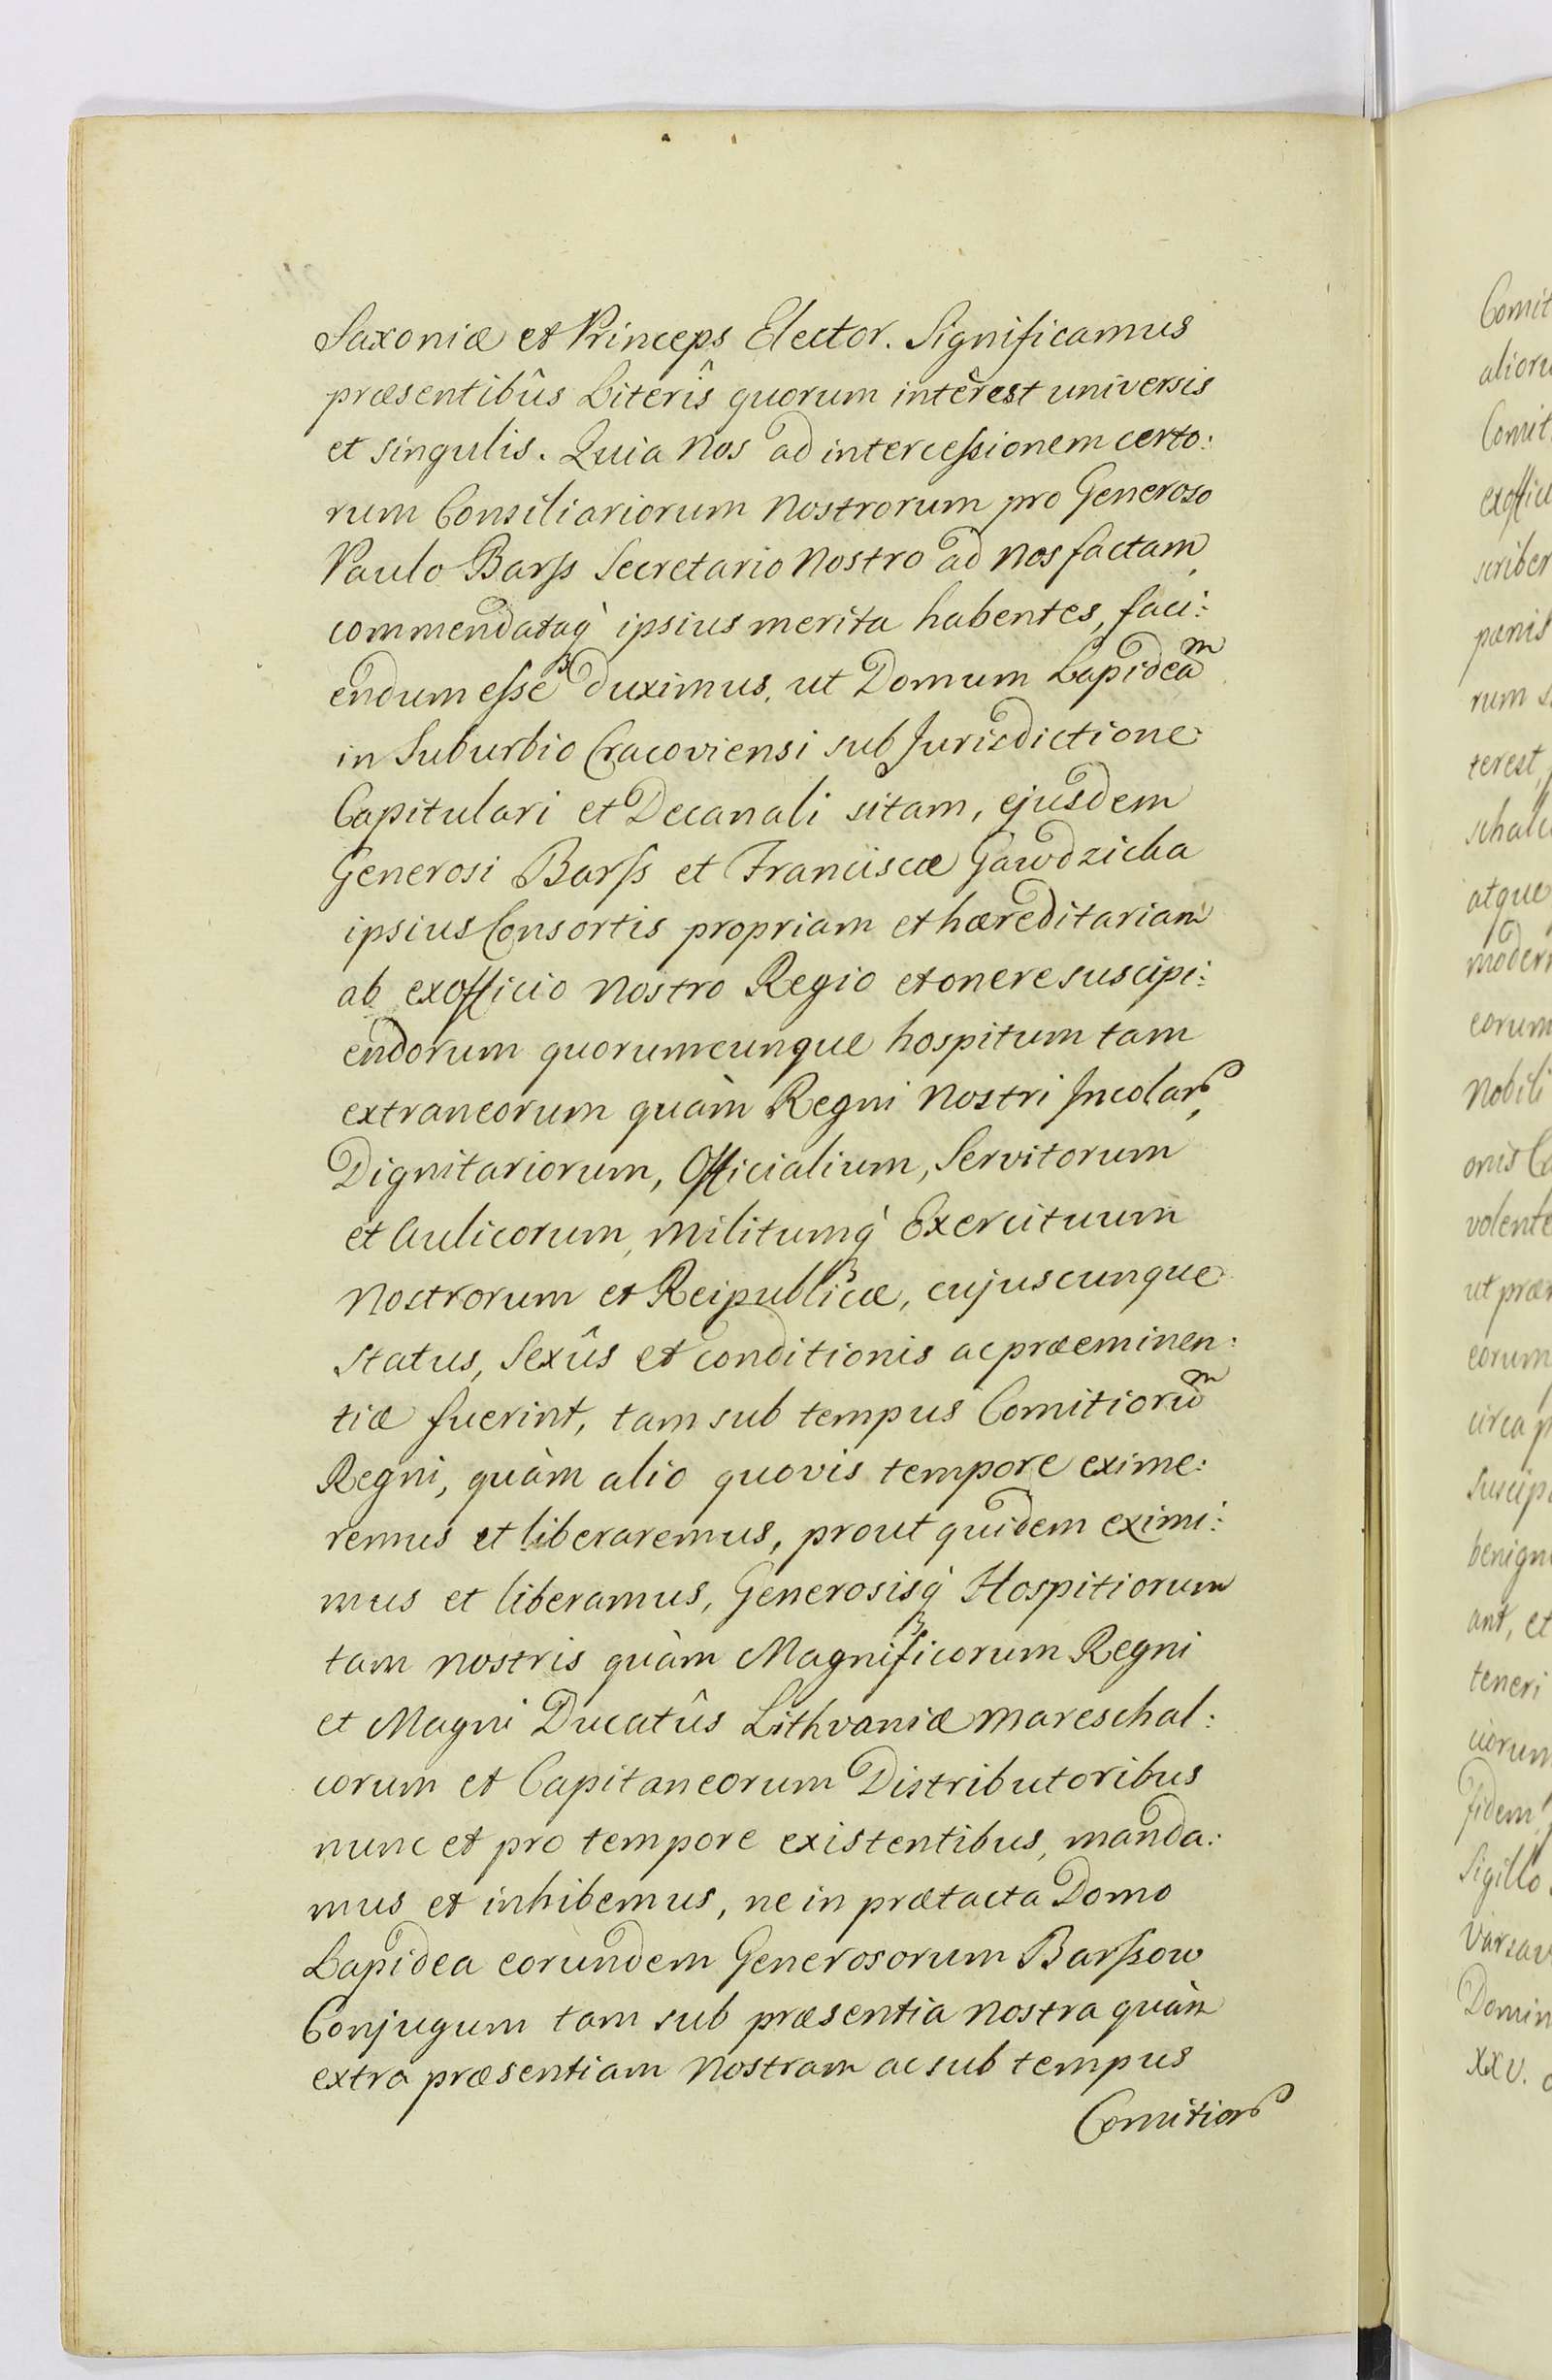 Saxoniæ et Princeps Elector. Significamus
præsentibûs Literîs quorum intêrest universis
et singulis. Quia Nos ad intercessionem certo:
rum Consiliariorum Nostrorum pro Generoso
Paulo Barss Secretario Nostro ad Nos factam,
commendataq̀ ipsius merita habentes, faci:
endum esse duximus, ut Domum Lapideam
in Suburbio Cracoviensi sub Jurisdictione
Capitulari et Decanali sitam, ejusdem
Generosi Barss et Franciscæ Gawdzicka
ipsius Consortis propriam et hæreditariam
ab exofficio Nostro Regio et onere suscipi:
endorum quorumcunque hospitum tam
extraneorum quàm Regni Nostri Incolar,
Dignitariorum, Officialium, Servitorum
et Aulicorum, Militumq̀ Exercituum
Nostrorum et Reipublicæ, cujuscunque
Status, Sexûs et conditionis ac præeminen:
tiæ fuerint, tam sub tempus Comitiorum
Regni, quàm alio quovis tempore exime:
remus et liberaremus, prout quidem eximi:
mus et liberamus, Generosisq̀ Hospitiorum
tam nostris quàm Magnificorum Regni
et Magni Ducatûs Lithvaniæ Mareschal:
corum et Capitaneorum Distributoribus
nunc et pro tempore existentibus, manda:
mus et inhibemus, ne in prætacta Domo
Lapidea eorundem Generosorum Barssow
Conjugum tam sub præsentia nostra quàm
extra præsentiam Nostram ac sub tempus
Comitior
Comit
alioru
Comit
exoffici
scriber
pænis
rum s
terest,
schalc
atque
modern
eorum
Nobili
onis Ca
volente
ut præ
eorum
circa p
Suscip
benign
ant, et
teneri
corum
fidem
Sigillo
Varsav
Domin
XXV.